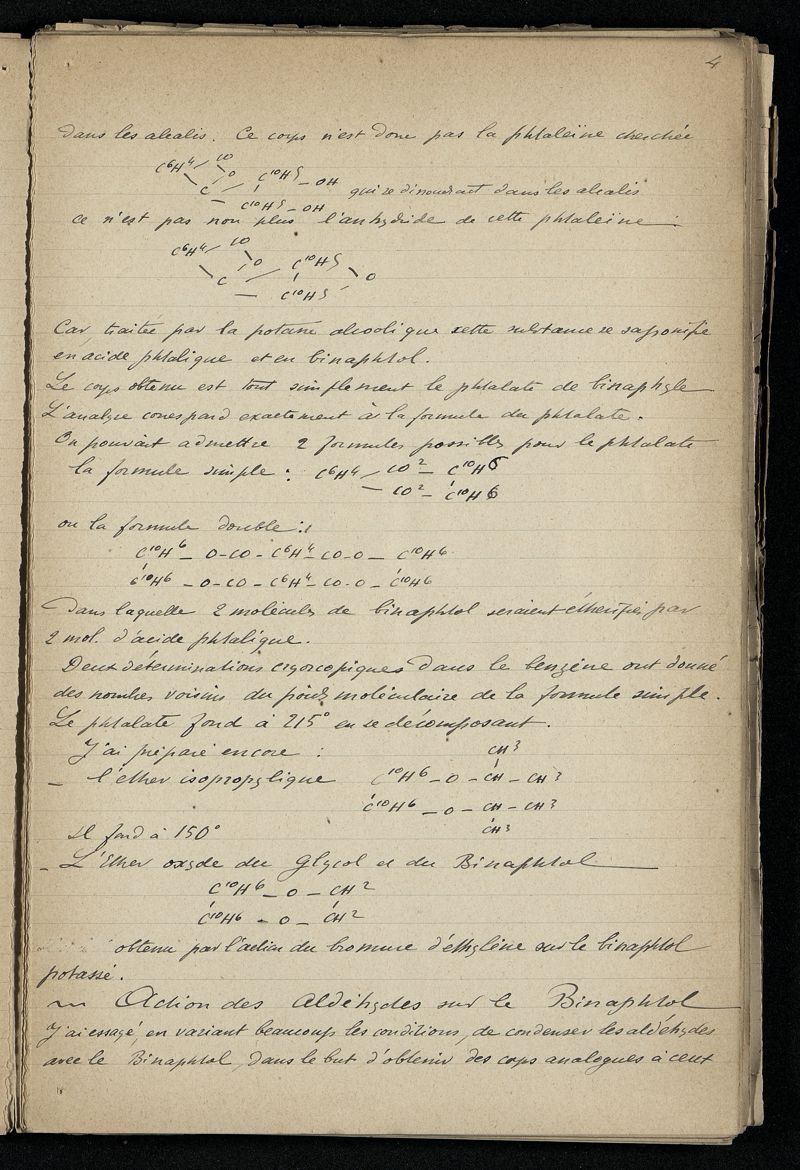 4
dans les alcalis. Ce corps n'est donc pas la phtaléine cherchée
C⁶H⁴ / CO
\ O C¹⁰H⁵ – OH
C / qui se dissoudrait dans les alcalis
C¹⁰H⁵ – OH
ce n'est pas non plus l'anhydride de cette phtaléine :
C⁶H⁴ / CO
\ O C¹⁰H⁵ \
C / O
– C¹⁰H⁵ /
Car, traitée par la potasse alcoolique cette substance se saponifie
en acide phtalique et en binaphtol.
Le corps obtenu est tout simplement le phtalate de binaphyle
L'analyse correspond exactement à la formule du phtalate.
On pouvait admettre 2 formules possibles pour le phtalate
la formule simple : C⁶H⁴ / CO² – C¹⁰H⁶
– CO² – C¹⁰H⁶
ou la formule double :
C¹⁰H⁶ – O – CO – C⁶H⁴ – CO – O – C¹⁰H⁶
C¹⁰H⁶ – O – CO – C⁶H⁴ – CO – O – C¹⁰H⁶
Dans laquelle 2 molécules de binaphtol seraient éthérifiées par
2 mol. d'acide phtalique.
Deux déterminations cryoscopiques dans le benzène ont donné
des nombres voisins du poids moléculaire de la formule simple.
Le phtalate fond à 215° en se décomposant.
J'ai préparé encore :
CH³
– l'éther isopropylique C¹⁰H⁶ – O – CH – CH³
C¹⁰H⁶ – O – CH – CH³
CH³
Il fond à 150°
– L'Ether oxyde du Glycol et du Binaphtol
C¹⁰H⁶ – O – CH²
C¹⁰H⁶ – O – CH²
obtenu par l'action du bromure d'éthylène sur le binaphtol
potassé.
~ Action des Aldéhydes sur le Binaphtol
J'ai essayé, en variant beaucoup les conditions, de condenser les aldéhydes
avec le Binaphtol, dans le but d'obtenir des corps analogues à ceux